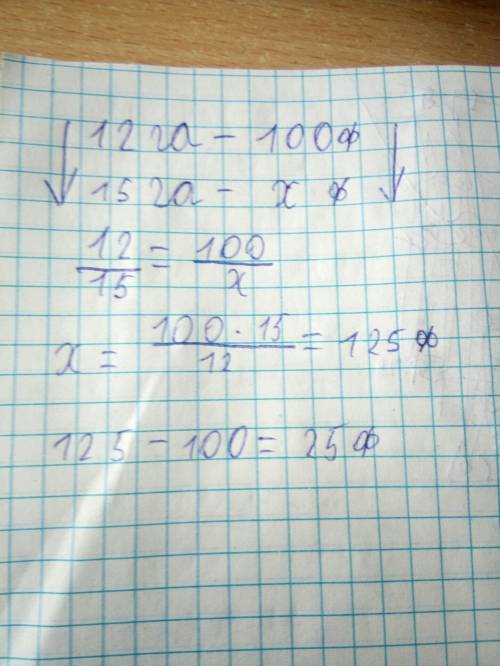 12 га - 100 %
15 га - x %
12/15 = 100/x
x = 100 · 15/12 = 125 %
125 - 100 = 25 %